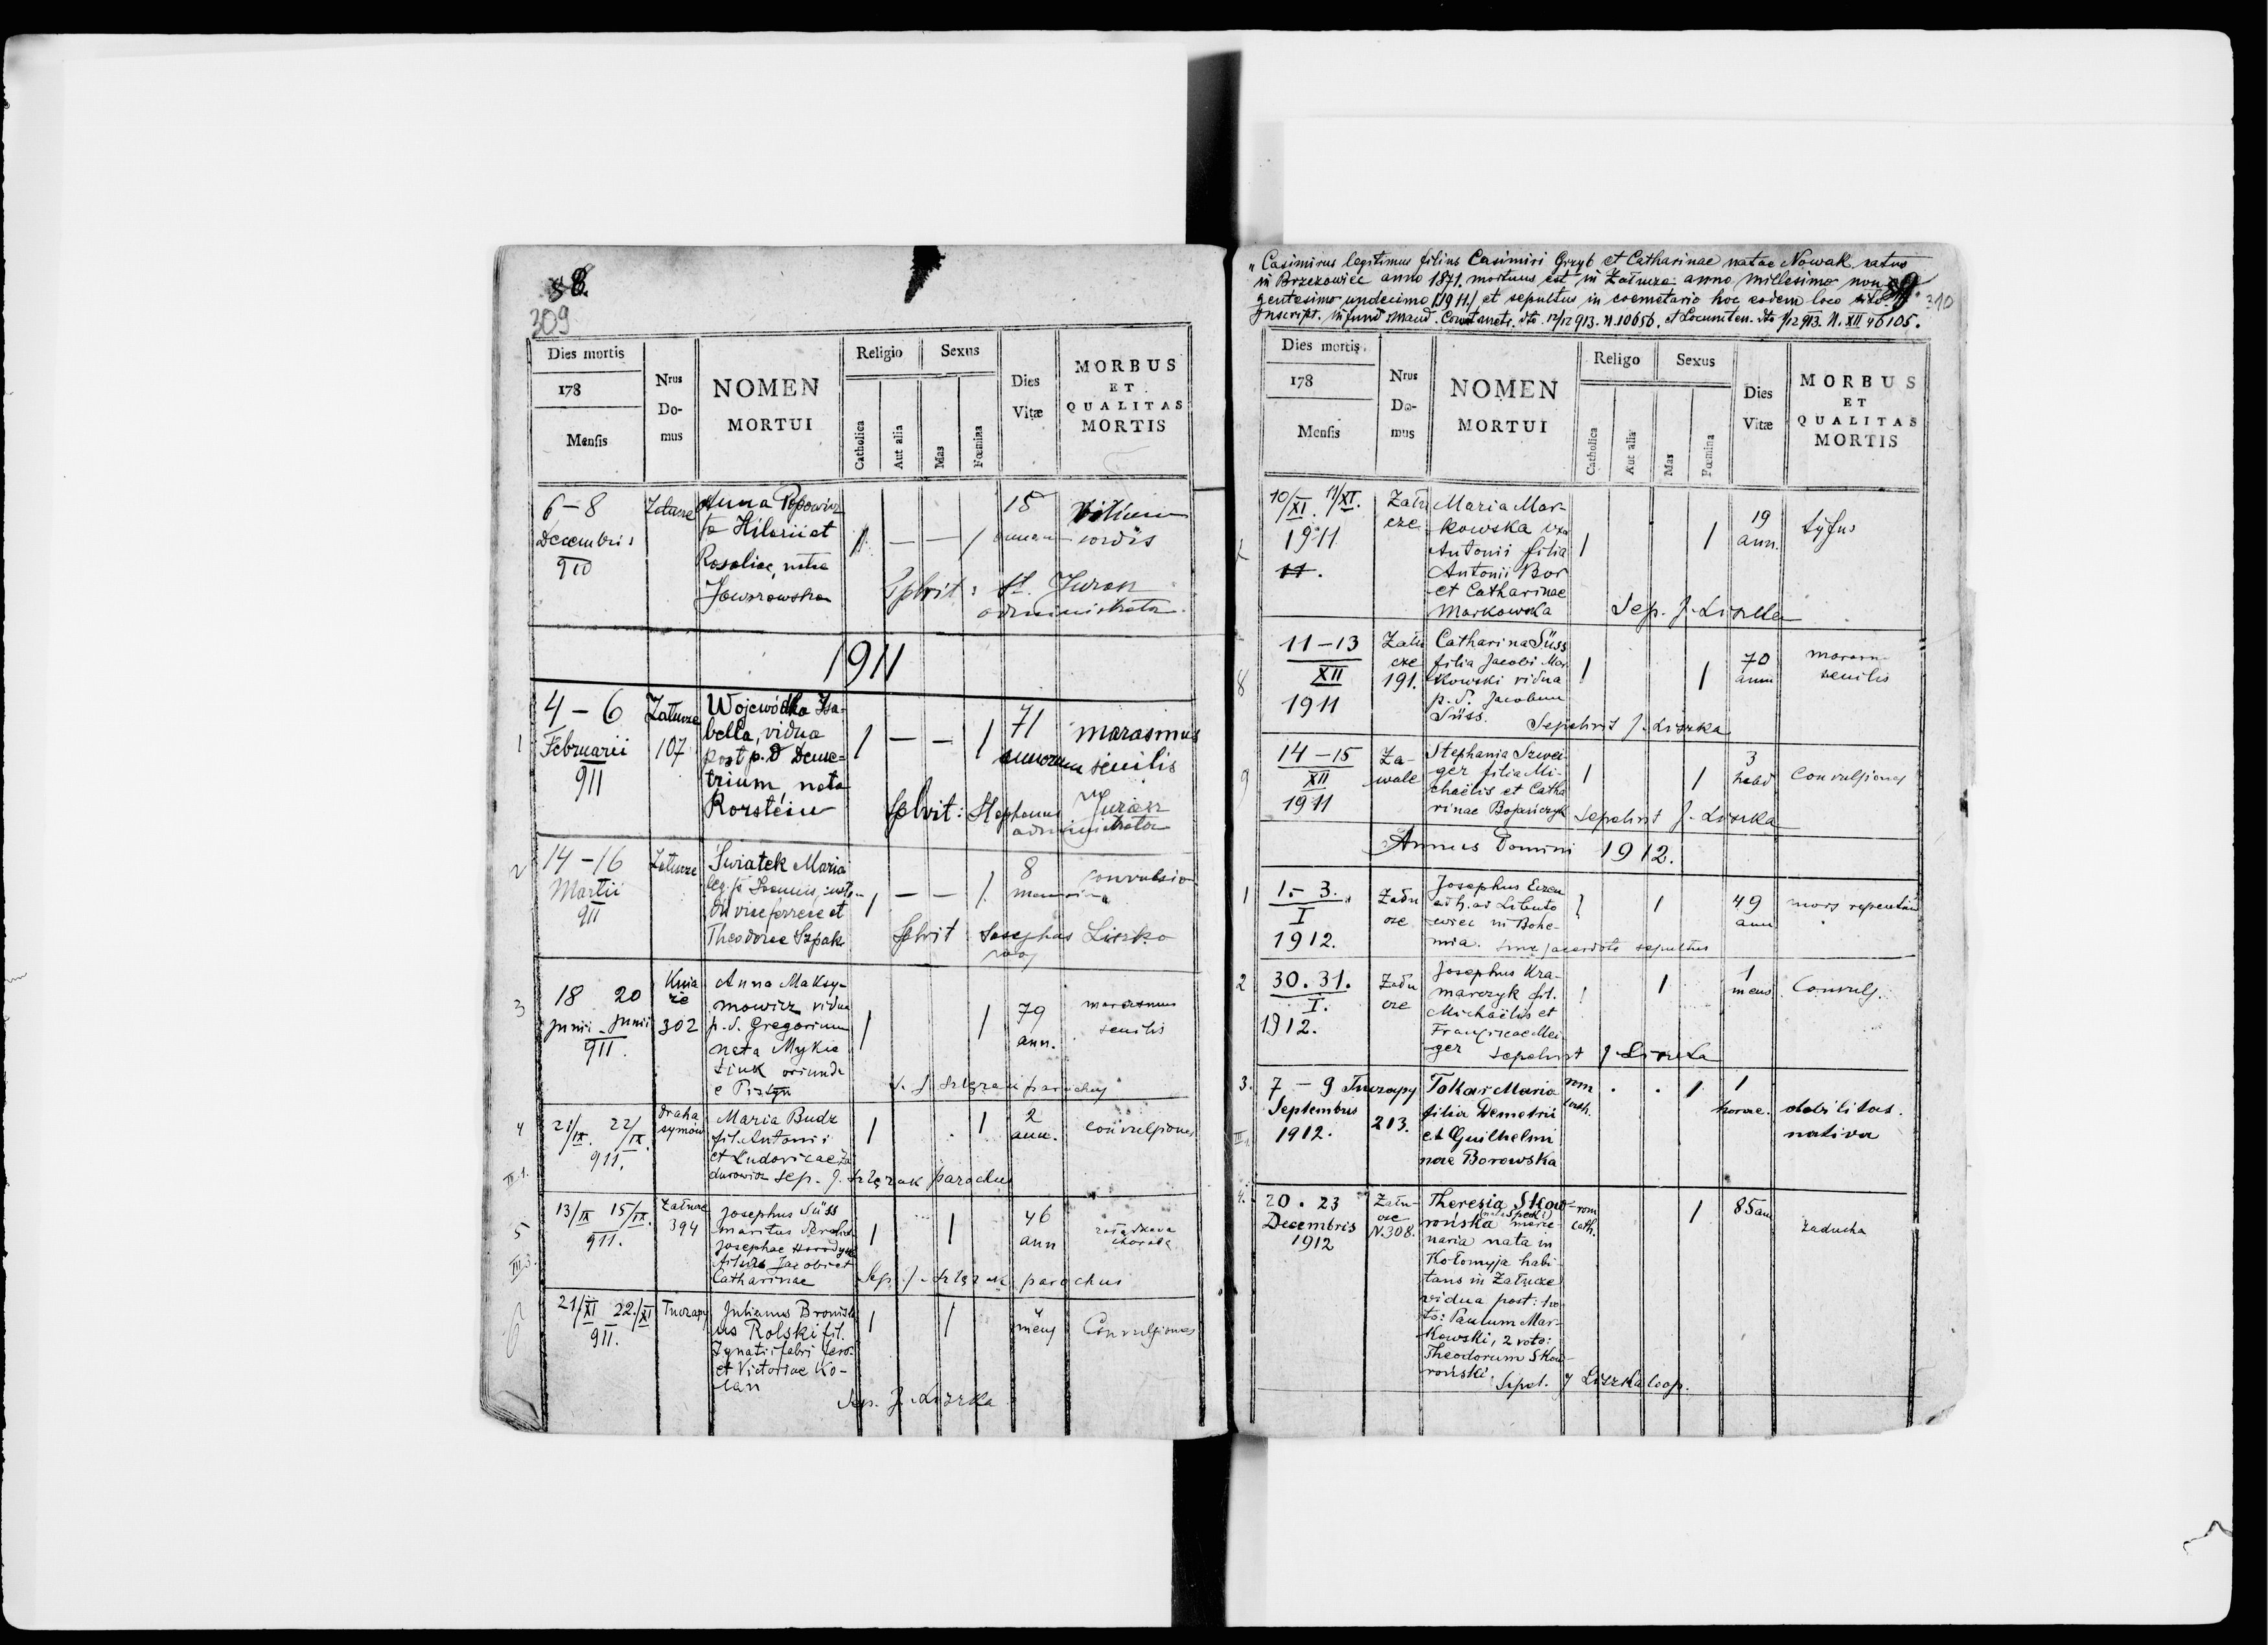 58.
309
Dies mortis
178
Mensis
Nrus
Do-
mus
NOMEN
MORTUI
Religio
Catholica
Aut alia
Sexus
Mas
Fœmina
Dies
Vitæ
MORBUS
ET
QUALITAS
MORTIS
6 – 8
Decembris
910
Załucze
Anna Popowicz
fa Hilarii et
Rosaliae, natae
Jaworowska
1 — — 1
15
annorum
Vitium
cordis
Splvit: St. Juron
administrator
1911
1
4 – 6
Februarii
911
Załucze
107
Wojewódka Isa-
bella, vidua
post p. d. Deme-
trium, nata
Rorstein
1 — — 1
71
annorum
marasmus
senilis
Splvit: Stephanus
administrator
2
14 – 16
Martii
911
Załucze
Swiatek Maria
leg. fa
viae ferreae et
Theodorae Szpak
1 — — 1
8
convulsio
Splvit Josephus Liszka
3
18 20
junii - junii
911.
Knia
że
302
Anna Maksy-
mowicz vidua
p. d. Gregorium
nata Mykie
tiuk oriunda
e Pistyn
1 1
79
ann.
marasmus
senilis
S. J. Szlęzak parochus
4
III.1.
21/IX. 22/IX.
911.
Draha
symów
Maria Budz
fil. Antonii
et Ludovicae Za
durowicz sep. J. Szlęzak parochus
1 1
2
ann.
convulsiones
5
III.3.
13/IX 15/IX.
911.
Załucze
394
Josephus Süss
maritus
Josephae
filius Jacobi et
Catharinae
1 1
46
ann
Sep. J. Szlęzak parochus
6
21/XI 22./XI
911.
Tuczapy
Julianus Bronisla
us Rolski fil.
Ignatii fabri ferr.
et Victoriae Ko-
lan
1 1
4
mens
Convulsiones
Sep. J. Liszka
„Casimirus legitimus filius Casimiri Grzyb et Catharinae natae Nowak natus
in Brzezowiec anno 1871. mortuus est in Załucze anno millesimo non
gentesimo undecimo /1911./ et sepultus in coemetario hoc eodem loco sito.
Inscript. in fund. mand. dto. 12/12 913. N. 10656. et Locumten. dto 1/12 913. N. XII 46105.
59.
310
Dies mortis.
178
Mensis
Nrus
Do-
mus
NOMEN
MORTUI
Religo
Catholica
Aut alia
Sexus
Mas
Fœmina
Dies
Vitæ
MORBUS
ET
QUALITAS
MORTIS
7
10/XI. 11/XI.
1911
11.
Zału
cze
Maria Mar-
kowska uxor
Antonii filia
Antonii Bor
et Catharinae
Markowska
1 1
19
ann.
tyfus
Sep. J. Liszka
8
11 – 13
XII
1911
Zału
cze
191.
Catharina Süss
filia Jacobi Mar
kowski vidua
p. d. Jacobum
Süss.
1 1
70
ann
marasm
senilis
Sepelivit J. Liszka
9
14 – 15
XII
1911
Za-
wale
Stephania Szwei-
ger filia Mi-
chaelis et Catha
rinae Bojańczyk
1 1
3
hebd
Convulsiones
Sepelivit J. Liszka
Annus Domini 1912.
1
1. – 3.
I
1912.
Zału
cze
Josephus
ad h. ad Libuto
wiec in Bohe-
mia. sine sacerdote sepultus
1 1
49
ann
mors repentina
2
30. 31.
I.
1912.
Zału
cze
Josephus Kra-
marczyk fil.
Michaëlis et
Franciscae Mei-
ger
1 1
1
mens
Convuls.
sepelivit J. Liszka
3.
7 – 9
Septembris
1912.
Tuczapy
213.
Tokar Maria
filia Demetrii
et Guilhelmi
nae Borowska
rom
cath.
. . 1
1
horae.
debilitas
nativa
4.
20. 23
Decembris
1912
Zału-
cze
N. 308.
Theresia Skow-
rońska
naria nata in
Kołomyja habi-
tans in Załucze
vidua post: 1 vo
to: Paulum Mar-
kowski, 2 voto:
Theodorum Skow-
roński.
rom
cath.
1
85 ann
zaducha
Sepel. J. Liszka coop.